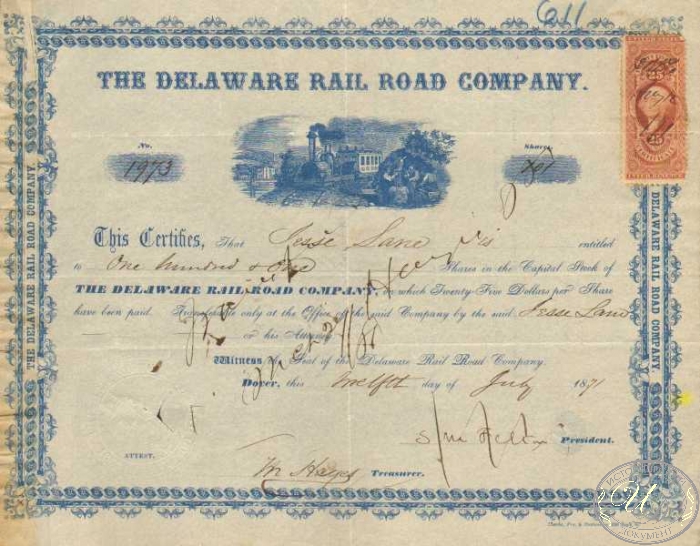 611
THE DELAWARE RAIL ROAD COMPANY.
No. Shares
1973 101
This Certifies, That Jesse Lane is entitled
to One hundred & One Shares in the Capital Stock of
THE DELAWARE RAIL ROAD COMPANY, on which Twenty Five Dollars per Share
have been paid. only at the Office of the said Company by the said Jesse Lane
or his Attorney
Witness the Seal of the Delaware Rail Road Company.
Dover, this twelfth day of July 1871
President.
ATTEST.
M Hayes Treasurer.
THE DELAWARE RAIL ROAD COMPANY.
DELAWARE RAIL ROAD COMPANY.
25
25
ДОКУМЕНТ